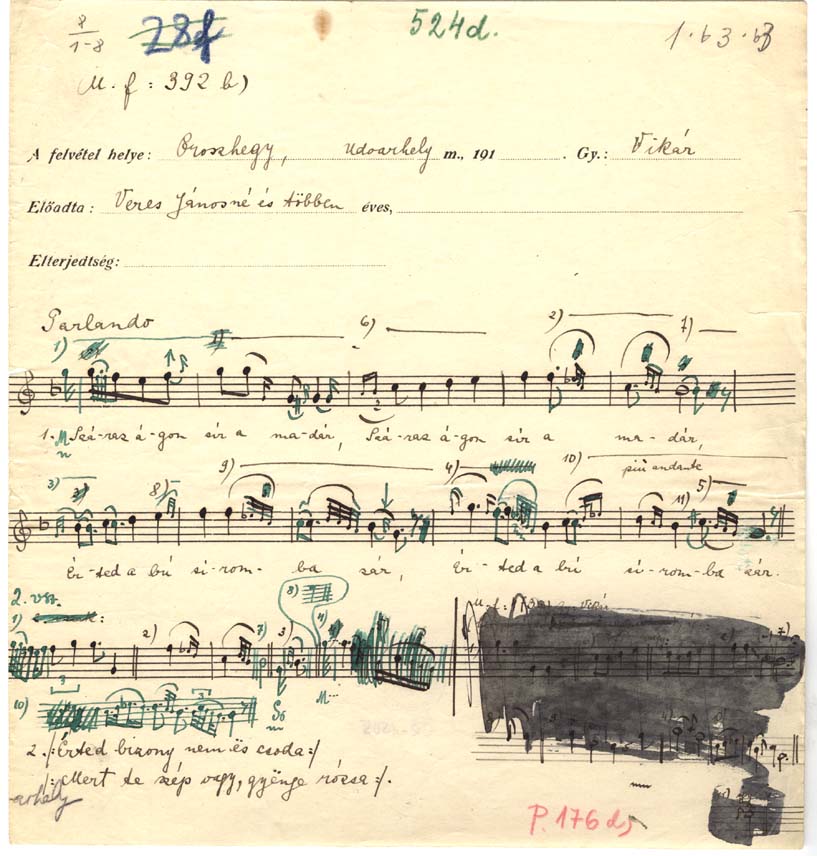 8/1-8 28f 524d. 1·63·63
M. f: 392 b)
A felvétel helye: Oroszhegy, Udvarhely m., 191 . Gy.: Vikár
Előadta: Veres Jánosné és többen éves,
Elterjedtség:
Parlando
1) 6) 2) 7)
1. Szá-raz á-gon sír a ma-dár, Szá-raz á-gon sír a ma-dár,
3) 8) 9) 4) 10) più andante 11) 5)
Ér-ted a bú si-rom-ba zár, Ér-ted a bú si-rom-ba zár.
2. vsz.
1) 2) 7) 3) 8)
10) 3 3
2. /:Érted bizony nem és csoda:/
/:Mert te szép vagy, gyönge rózsa:/.
P. 176 d,